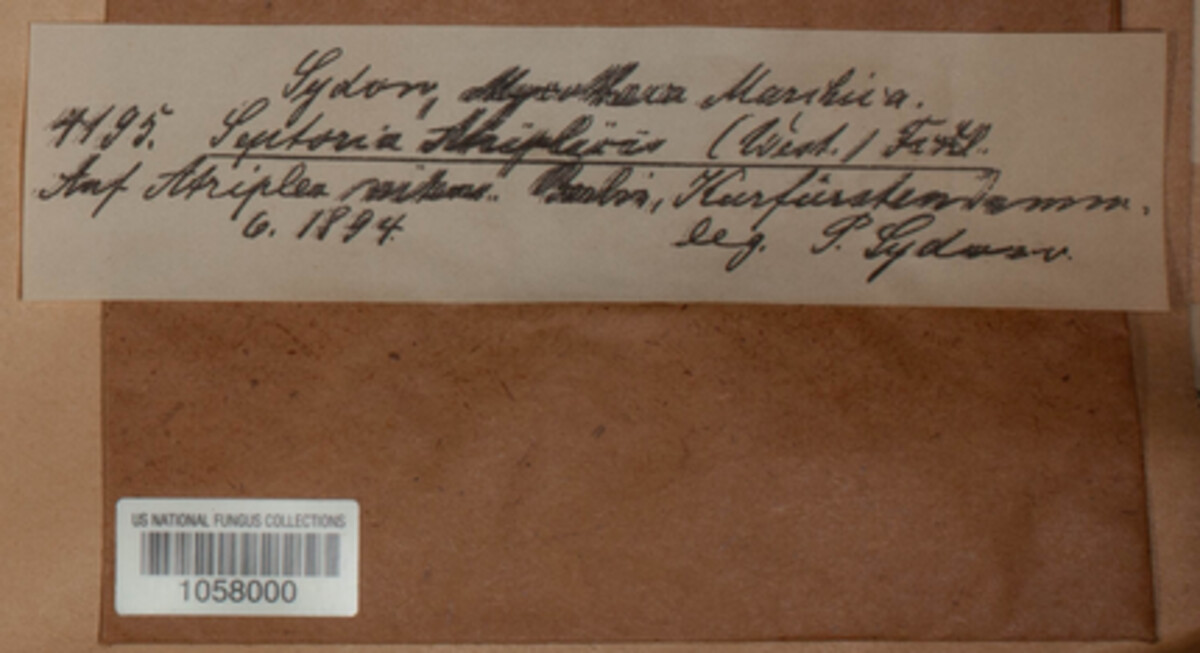 Sydow, Mycotheca Marchica.
4195. Septoria Atriplicis (West.) Fckl.
Auf Atriplex nitens. Berlin, Kurfürstendamm.
6. 1894. leg. P. Sydow.
US NATIONAL FUNGUS COLLECTIONS
1058000